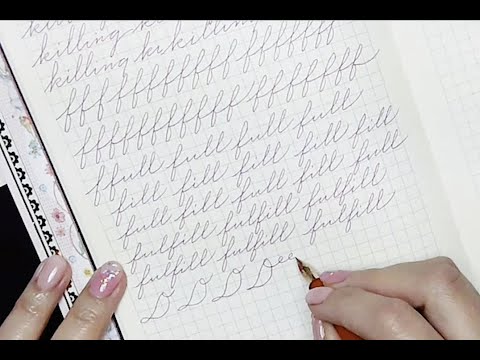 killing
killing ki killing
fffffffffff fffffff
fffffffffff fffffff
ffull full full full
fill fill fill fill fill
full fill full fill full
fulfill fulfill fulfill
fulfill fulfill fulfill
D D D Dee